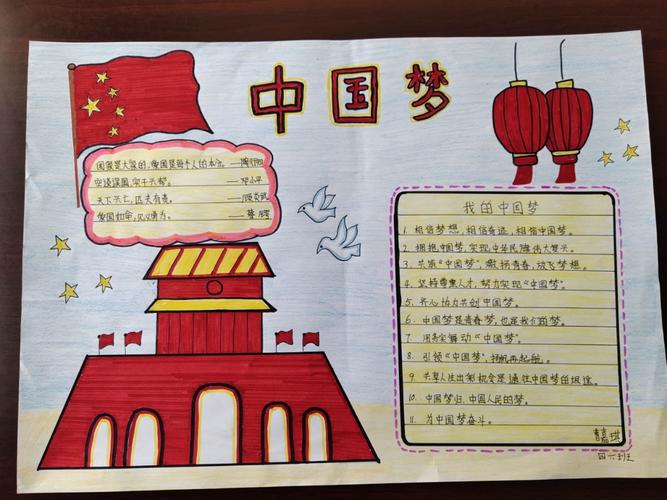 中国梦
国家是大家的，爱国是每个人的本分。——陶行知
空谈误国，实干兴邦。——邓小平
天下兴亡，匹夫有责。——顾炎武
爱国如命，见义勇为。——蔡锷
我的中国梦
1. 相信梦想，相信奇迹，相信中国梦。
2. 拥抱中国梦，实现中华民族伟大复兴。
3. 共筑"中国梦"，激扬青春，放飞梦想。
4. 坚持尊重人才，努力实现"中国梦"。
5. 齐心协力共创中国梦。
6. 中国梦是青春梦，也是我们的梦。
7. 用务实舞动"中国梦"。
8. 引领"中国梦"，扬帆再起航。
9. 共享人生出彩机会是通往中国梦的坦途。
10. 中国梦归，中国人民的梦。
11. 为中国梦奋斗。
琪
四六班